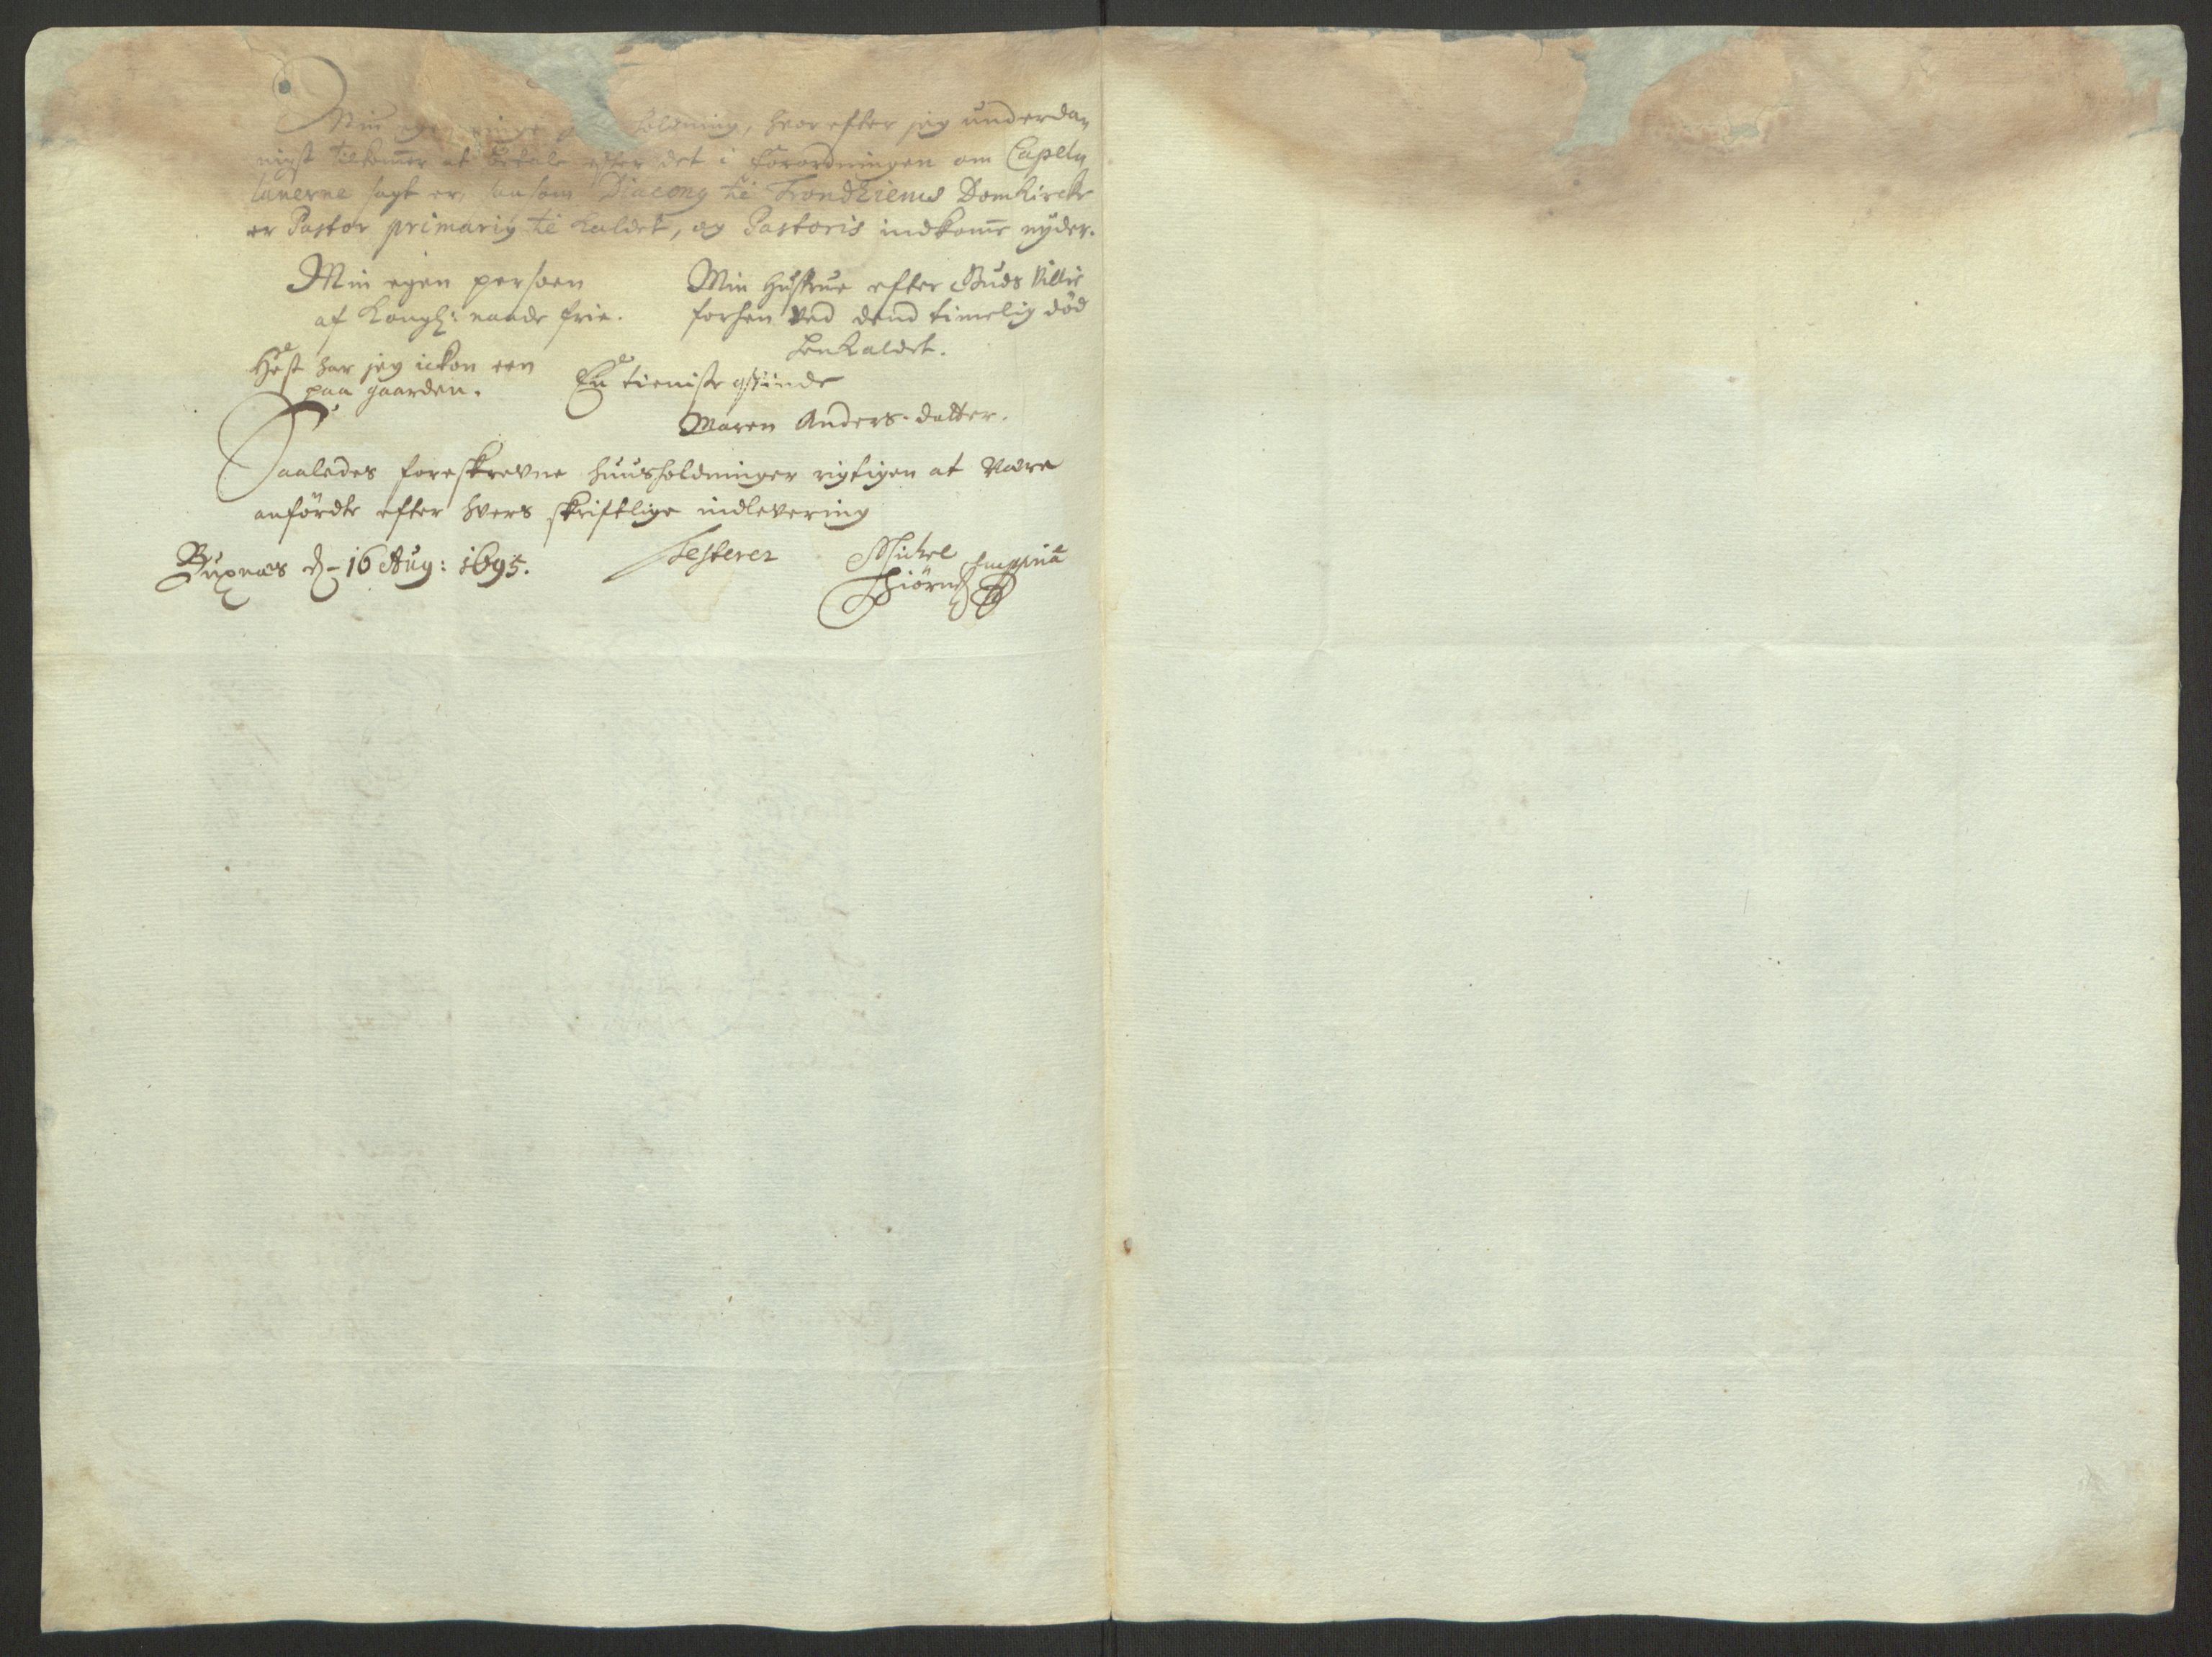 Min egen ringe holdning, hvor efter jeg underda-
nigst tilkommer at betale efter det i forordningen om Capel-
lanerne sagt er, saasom Diacong til Trondhiems Domkircke
er Pastor primarig til Kaldet, og Pastoris indkomme nyder.
Min egen persoen
af Kongl: naade frie.
Min Hustrue efter Guds Villie
forhen ved dend timelig død
henkaldet.
Hest har jeg ickon een
paa gaarden.
En tieniste qvinde
Maren Anders-datter.
Saaledes foreskrevne huusholdninger rigtigen at være
anfördte efter hvers skriftlige indlevering
Buxnæs d. 16 Aug: 1695.
Testerer
Michel
Hiörn